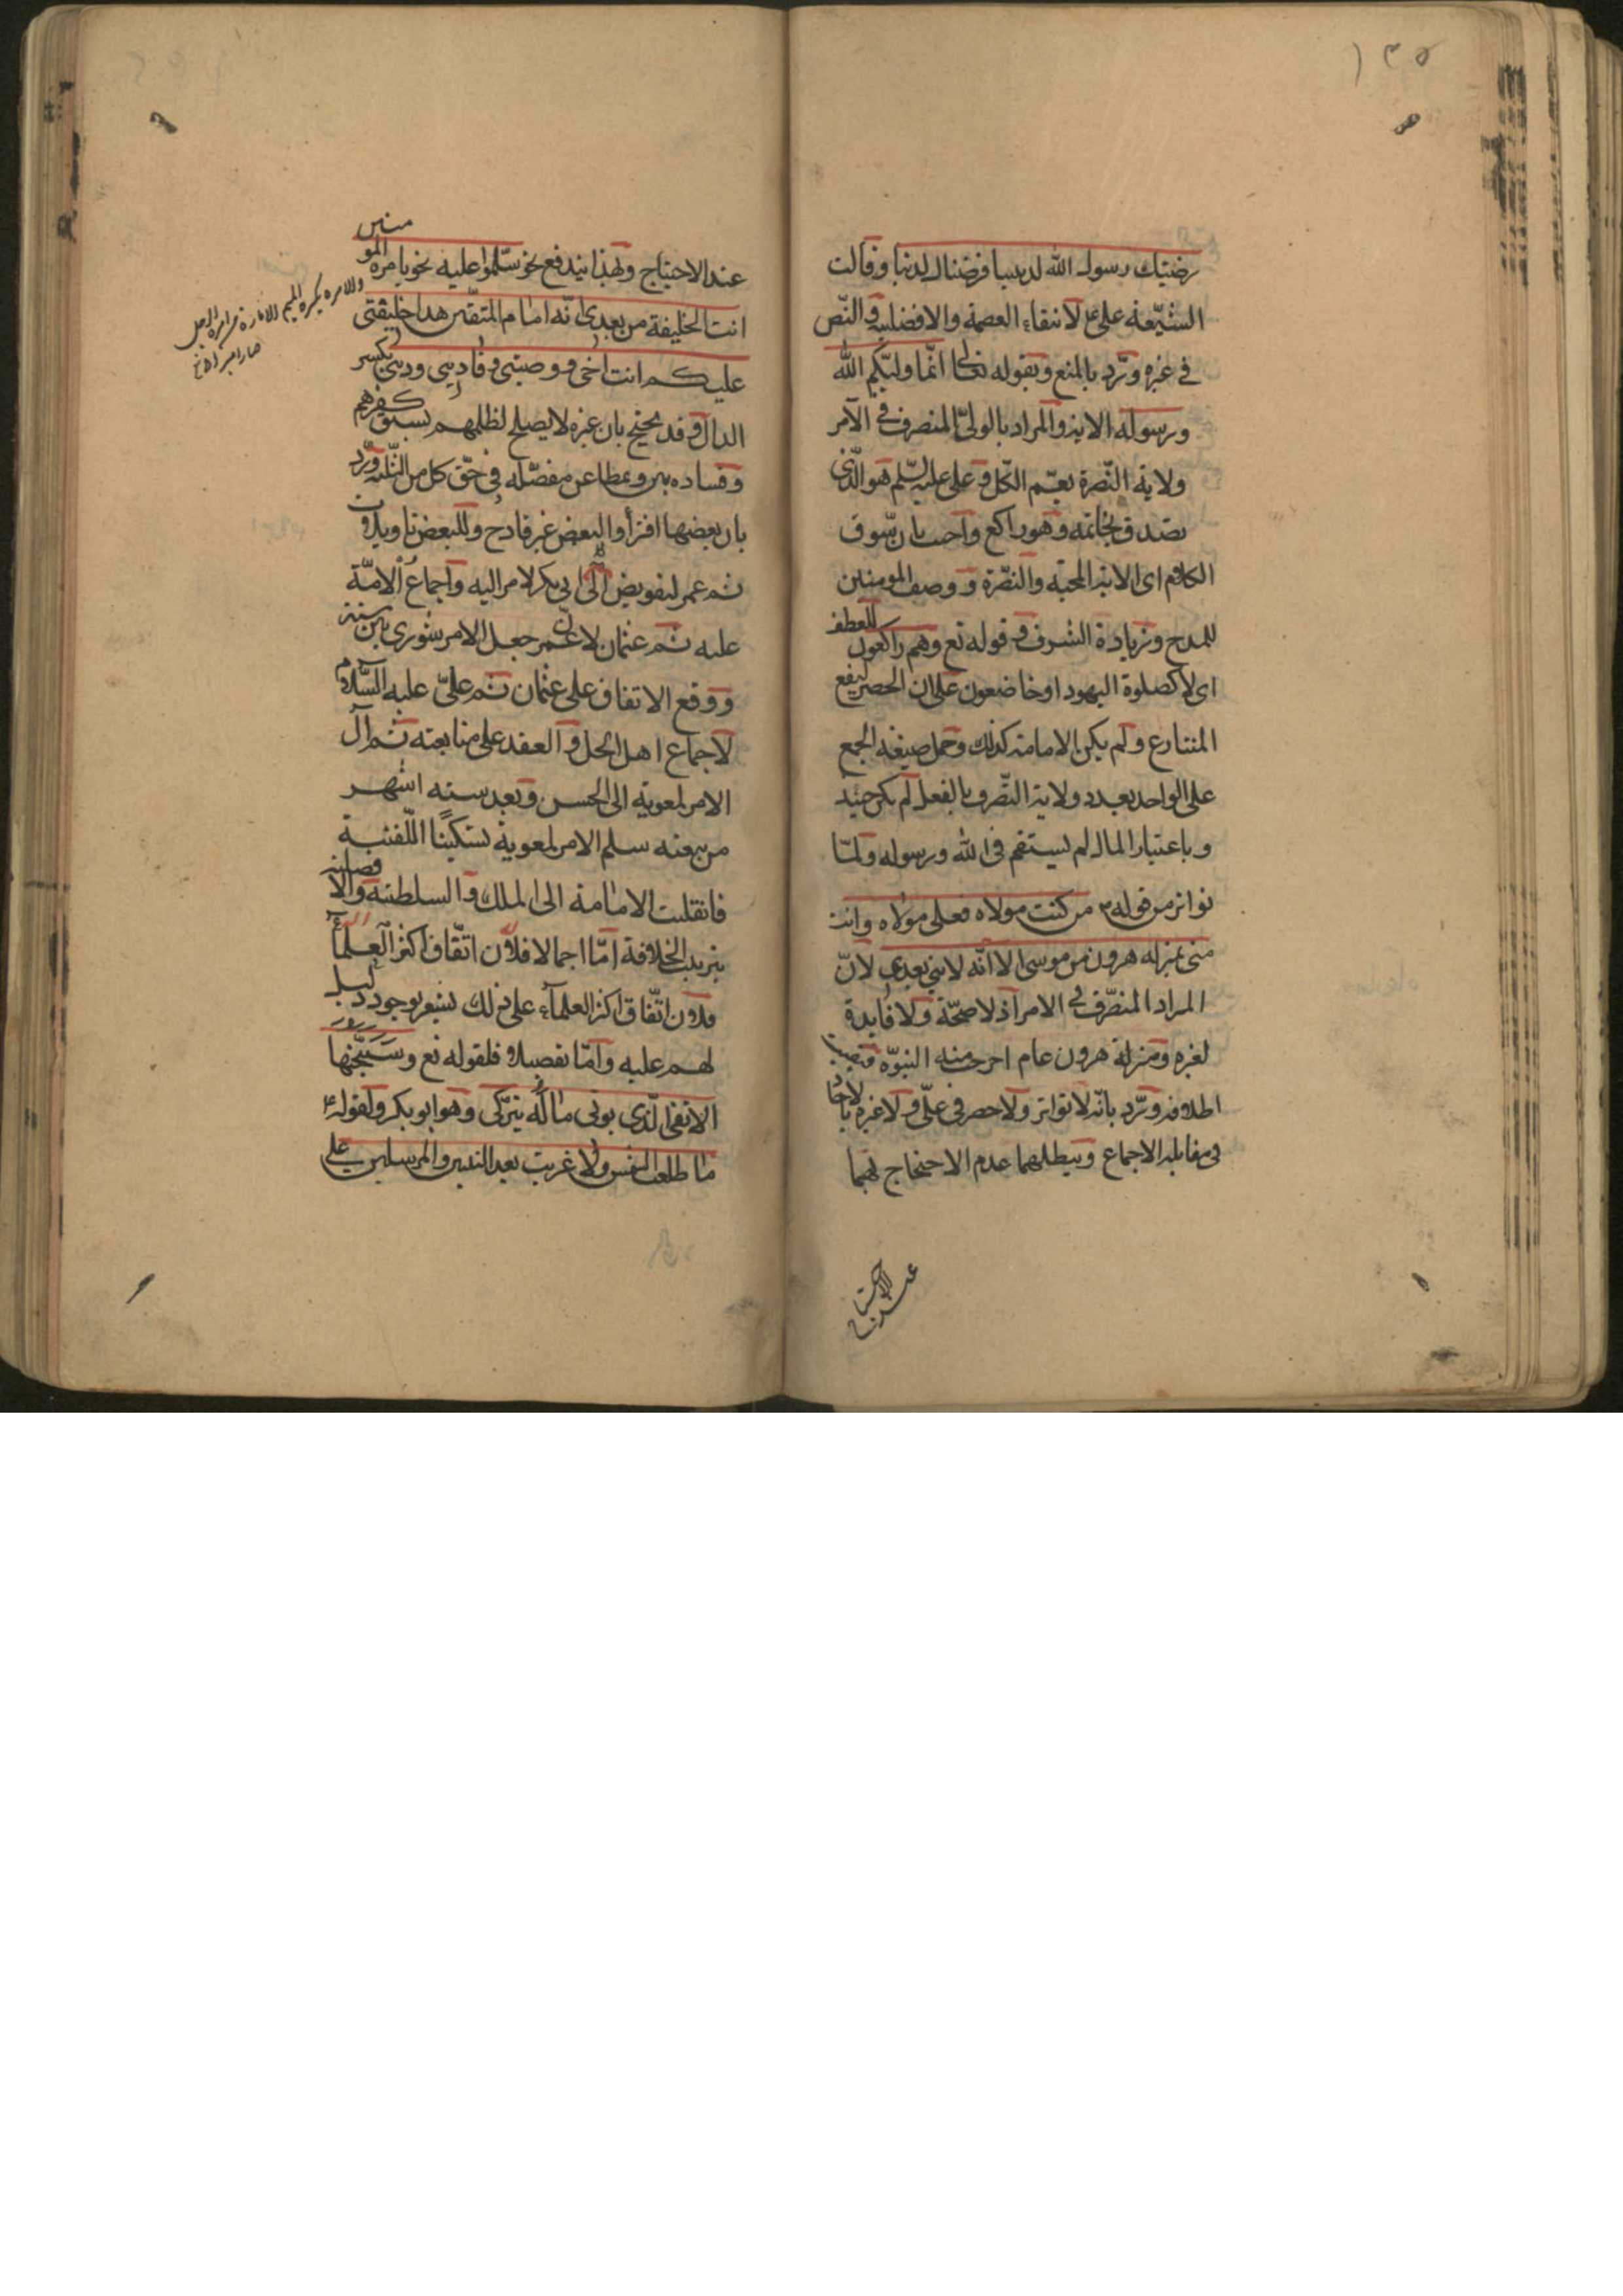 ١٣٥
رضيك رسول الله لديننا فرضناك لدنيانا وقالت
الشيعة على ع لانتفاء العصمة والافضلية والنص
في غيره ورد بالمنع وبقوله تعالى انما وليكم الله
ورسوله الاية والمراد بالولي المتصرف في الامر
ولاية النصرة تعم الكل وعلي عليه السلم هو الذي
تصدق بخاتمه وهو راكع واجيب بان سوق
الكلام اى الاية المحبة والنصرة ووصف المومنين
للمدح وزيادة الشرف وقوله تع وهم راكعون للعطف
اى لا كصلوة اليهود او خاضعون على ان الحصر ليفع
المتنازع ولم يكن الامامة كذلك وحمل صيغة الجمع
على الواحد بعيد وولاية التصرف بالفعل لم يكن حينئذ
وباعتبار المال لم يستقم في الله ورسوله ولما
تواتر من قوله من كنت مولاه فعلي مولاه وانت
مني بمنزلة هرون من موسى الا انه لا نبي بعدي لان
المراد المتصرف في الامر اذ لا صحة ولا فايدة
لغيره ومنزلة هرون عام اخرجت منه النبوة
ورد بانه لا تواتر ولا حصر في علي ولا غيره
في مقابلة الاجماع ويبطلهما عدم الاحتجاج بهما
عند الاحتياج
عند الاحتياج وبهذا يندفع نحو سلموا عليه نحو بامرة المو
منين
انت الخليفة من بعدي انه امام المتقين هذا خليفتي
عليكم انت اخي ووصيتي وقاضي ديني بكسر
الدال وقد يحتج بان غيره لا يصلح لظلمهم لسبق كفرهم
وفساده بين ومطاعن مفصلة في حق كل من الثلثة ورد
بان بعضها افتراء والبعض غير قادح وللبعض تاويلات
ثم عمر لتفويض ابي بكر الامر اليه واجماع الامة
عليه ثم عثمان لان عمر جعل الامر شورى بين ستة
ووقع الاتفاق على عثمان ثم علي عليه السلام
لاجماع اهل الحل والعقد على متابعته ثم آل
الامر لمعوية الى الحسن وبعد ستة اشهر
من بيعته سلم الامر لمعوية تسكينا للفتنة
فانتقلت الامامة الى الملك والسلطنة والا
فضلية
بترتيب الخلافة اما اجمالا فلان اتفاق اكثر العلماء
فلان اتفاق اكثر العلماء على ذلك يشعر بوجود دليل
لهم عليه واما تفصيلا فلقوله تع وسيجنبها
الاتقى الذي يؤتي ماله يتزكى وهو ابو بكر ولقوله ع
ما طلعت الشمس ولا غربت بعد النبيين والمرسلين على
والامرة بكسر الميم